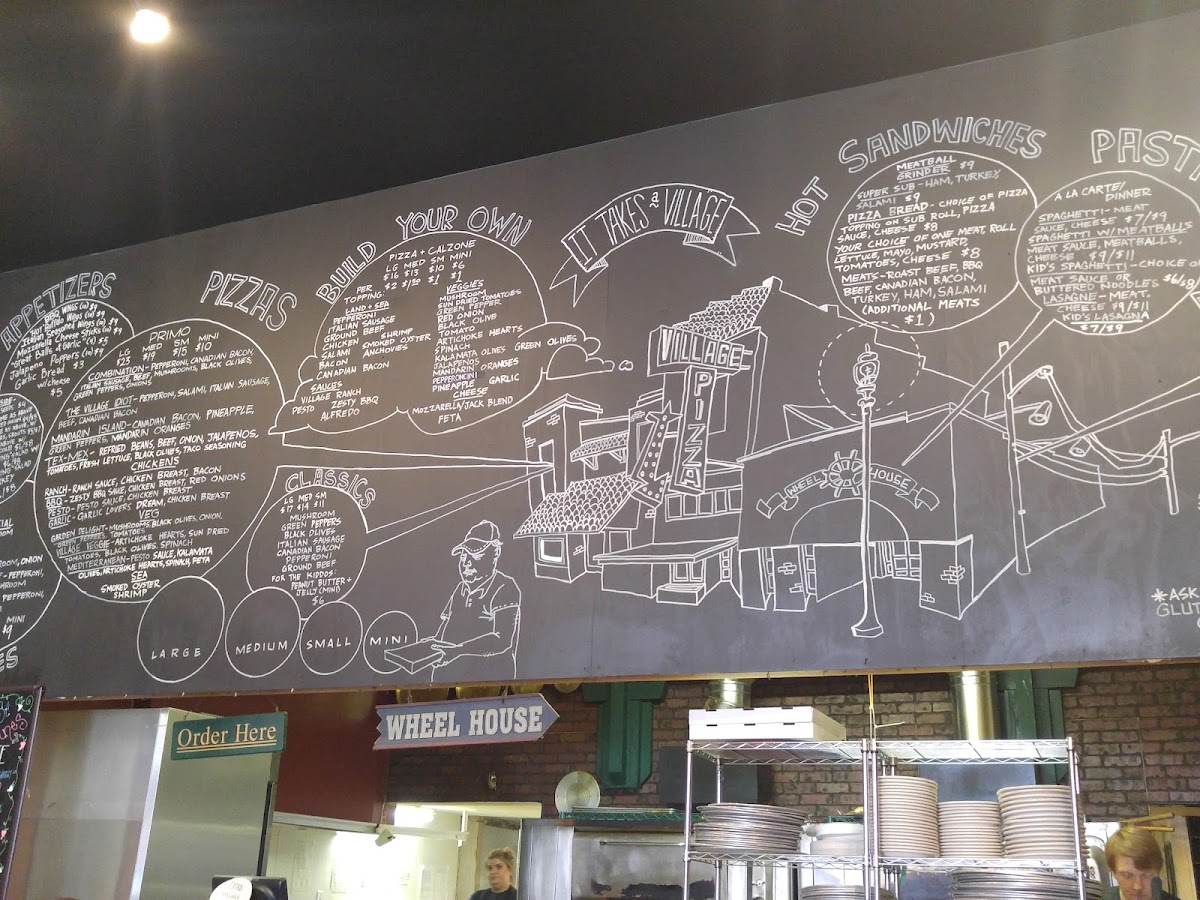 APPETIZERS
Garlic Bread $3
w/cheese
$5
PIZZAS
PRIMO
LG MED SM MINI
$23 $19 $15 $10
COMBINATION - PEPPERONI, CANADIAN BACON,
ITALIAN SAUSAGE, BEEF, MUSHROOMS, BLACK OLIVES,
GREEN PEPPERS, ONIONS
THE VILLAGE IDIOT - PEPPERONI, SALAMI, ITALIAN SAUSAGE,
BEEF, CANADIAN BACON
MANDARIN ISLAND - CANADIAN BACON, PINEAPPLE,
GREEN PEPPERS, MANDARIN ORANGES
TEX-MEX - REFRIED BEANS, BEEF, ONION, JALAPENOS,
TOMATOES, FRESH LETTUCE, BLACK OLIVES, TACO SEASONING
CHICKENS
RANCH - RANCH SAUCE, CHICKEN BREAST, BACON
BBQ - ZESTY BBQ SAUCE, CHICKEN BREAST, RED ONIONS
PESTO - PESTO SAUCE, CHICKEN BREAST
GARLIC - GARLIC LOVERS DREAM, CHICKEN BREAST
VEG
GARDEN DELIGHT - MUSHROOMS, BLACK OLIVES, ONION,
GREEN PEPPERS, TOMATOES
VILLAGE VEGGIE - ARTICHOKE HEARTS, SUN DRIED
TOMATOES, BLACK OLIVES, SPINACH
MEDITERRANEAN - PESTO SAUCE, KALAMATA
OLIVES, ARTICHOKE HEARTS, SPINACH, FETA
SEA
SMOKED OYSTER
SHRIMP
BUILD YOUR OWN
PIZZA + CALZONE
LG MED SM MINI
$16 $13 $10 $6
PER
TOPPING:
$2 $1.50 $1 $1
LAND + SEA
PEPPERONI
ITALIAN SAUSAGE
GROUND BEEF
CHICKEN SHRIMP
SALAMI SMOKED OYSTER
BACON ANCHOVIES
CANADIAN BACON
SAUCES
VILLAGE RANCH
PESTO ZESTY BBQ
ALFREDO
VEGGIES
MUSHROOM
SUN DRIED TOMATOES
GREEN PEPPER
RED ONION
BLACK OLIVE
TOMATO
ARTICHOKE HEARTS
SPINACH
KALAMATA OLIVES GREEN OLIVES
JALAPENOS
MANDARIN ORANGES
PEPPERONCINI
PINEAPPLE GARLIC
CHEESE
MOZZARELLA/JACK BLEND
FETA
CLASSICS
LG MED SM
$17 $14 $11
MUSHROOM
GREEN PEPPERS
BLACK OLIVES
ITALIAN SAUSAGE
CANADIAN BACON
PEPPERONI
GROUND BEEF
FOR THE KIDDOS:
PEANUT BUTTER +
JELLY (MINI)
$6
LARGE
MEDIUM
SMALL
MINI
IT TAKES a VILLAGE
VILLAGE
PIZZA
WHEEL HOUSE
HOT SANDWICHES
MEATBALL
GRINDER $9
SUPER SUB - HAM, TURKEY
SALAMI $9
PIZZA BREAD - CHOICE OF PIZZA
TOPPING ON SUB ROLL, PIZZA
SAUCE, CHEESE $8
YOUR CHOICE OF ONE MEAT, ROLL
LETTUCE, MAYO, MUSTARD,
TOMATOES, CHEESE $8
MEATS - ROAST BEEF, BBQ
BEEF, CANADIAN BACON,
TURKEY, HAM, SALAMI
(ADDITIONAL MEATS
$1)
PAST
A LA CARTE/
DINNER
SPAGHETTI - MEAT
SAUCE, CHEESE $7/$9
SPAGHETTI W/MEATBALLS
MEAT SAUCE, MEATBALLS,
CHEESE $9/$11
KID'S SPAGHETTI - CHOICE O
MEAT SAUCE OR
BUTTERED NOODLES $6/$8
LASAGNE - MEAT,
CHEESE $9/$11
KID'S LASAGNA
$7/$9
*ASK
GLUT
Order Here
WHEEL HOUSE